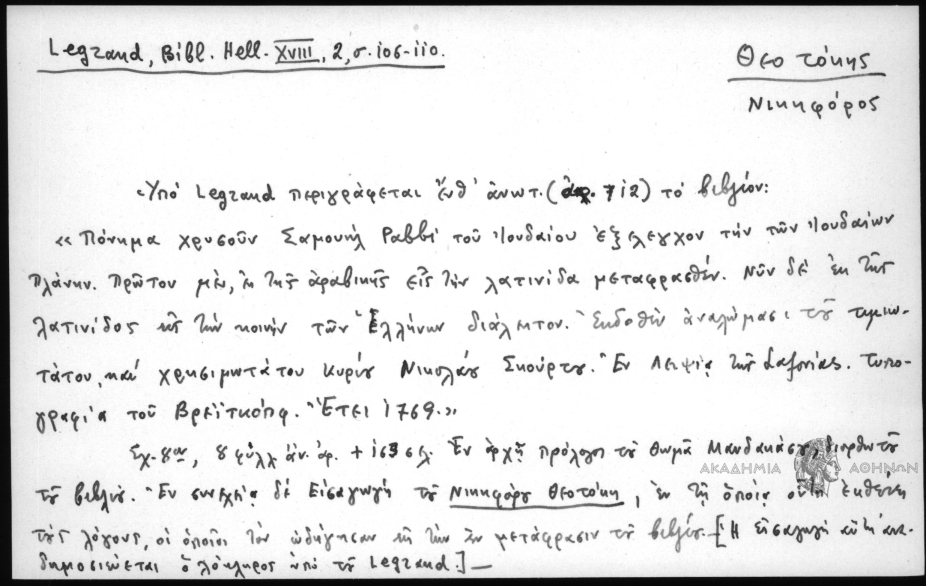 Legrand, Bibl. Hell. XVIII, 2, σ. 106-110.
Θεοτόκης
Νικηφόρος
Ὑπό Legrand περιγράφεται ἔνθ' ἀνωτ. (ἀρ. 712) τό βιβλίον:
«Πόνημα χρυσοῦν Σαμουήλ Ραββί τοῦ Ἰουδαίου ἐξελεγχον τήν τῶν Ἰουδαίων
πλάνην. Πρῶτον μέν, ἐκ τῆς ἀραβικῆς εἰς τήν λατινίδα μεταφρασθέν. Νῦν δέ ἐκ τῆς
λατινίδος εἰς τήν κοινήν τῶν Ἑλλήνων διάλεκτον. Ἐκδοθέν ἀναλώμασι τοῦ τιμιω-
τάτου, καί χρησιμωτάτου Κυρίου Νικολάου Σκούρτου. Ἐν Λειψίᾳ τῆς Σαξονίας. Τυπο-
γραφίᾳ τοῦ Βρεϊτκόπφ. Ἔτει 1769.»
Σχ. 8ον, 8 φύλλ. ἄν. ἀρ. + 163 σελ. Ἐν ἀρχῇ πρόλογος τοῦ Θωμᾶ Μανδακάσου, διορθωτοῦ
τοῦ βιβλίου. Ἐν συνεχείᾳ δέ Εἰσαγωγή τοῦ Νικηφόρου Θεοτόκη, ἐν τῇ ὁποίᾳ οὗτος ἐκθέτει
τούς λόγους, οἱ ὁποῖοι τόν ὡδήγησαν εἰς τήν ἐν μετάφρασιν τοῦ βιβλίου. [Ἡ εἰσαγωγή αὕτη ἀνα-
δημοσιεύεται ὁλόκληρος ὑπό τοῦ Legrand.]—
ΑΚΑΔΗΜΙΑ ΑΘΗΝΩΝ